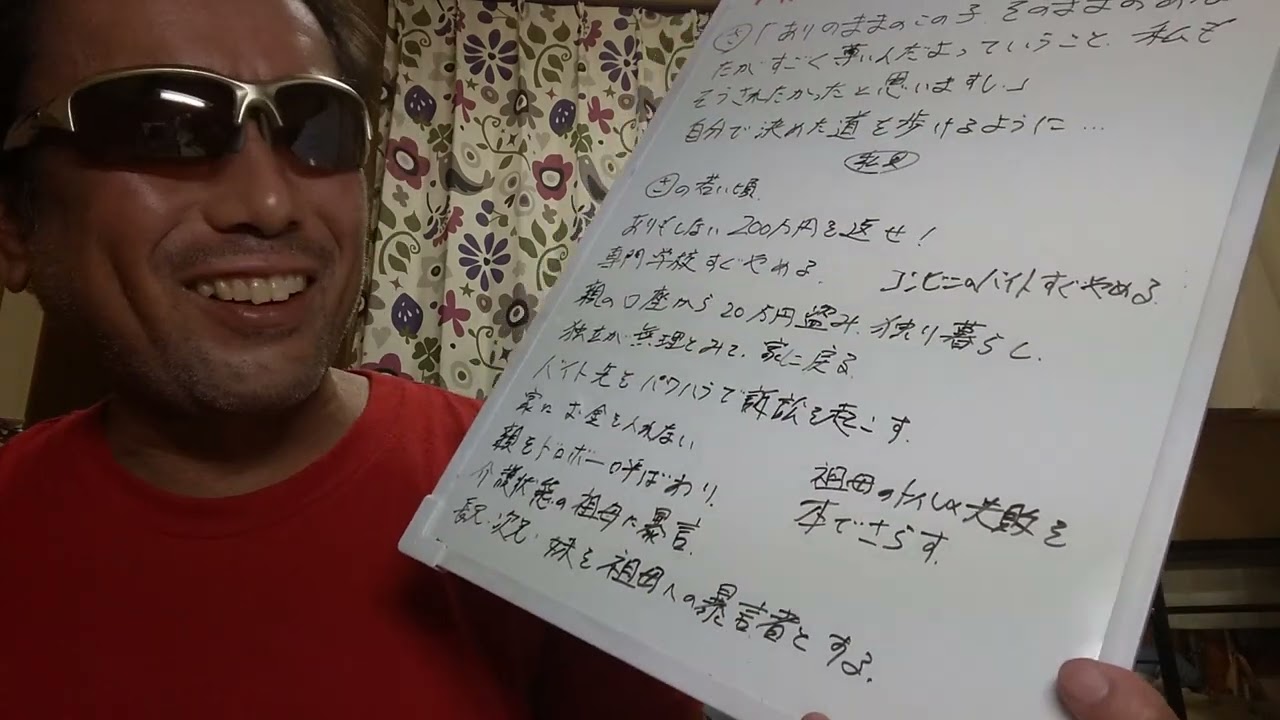 ㋚「ありのままのこの子、そのままのあな
たがすごく尊いんだよっていうこと、私も
そうされたかったと思いますし」
自分で決めた道を歩けるように…
の若い頃
ありもしない200万円を返せ!
専門学校すぐやめる。 コンビニのバイトすぐやめる。
親の口座から20万円盗み、独り暮らし、
独立が無理とみて、家に戻る。
バイト先をパワハラで訴訟を起こす。
家にお金を入れない
親をドロボー呼ばわり。
介護状態の祖母に暴言。
祖母のトイレの失敗を
本でさらす。
長兄、次兄、妹を祖母への暴言者とする。